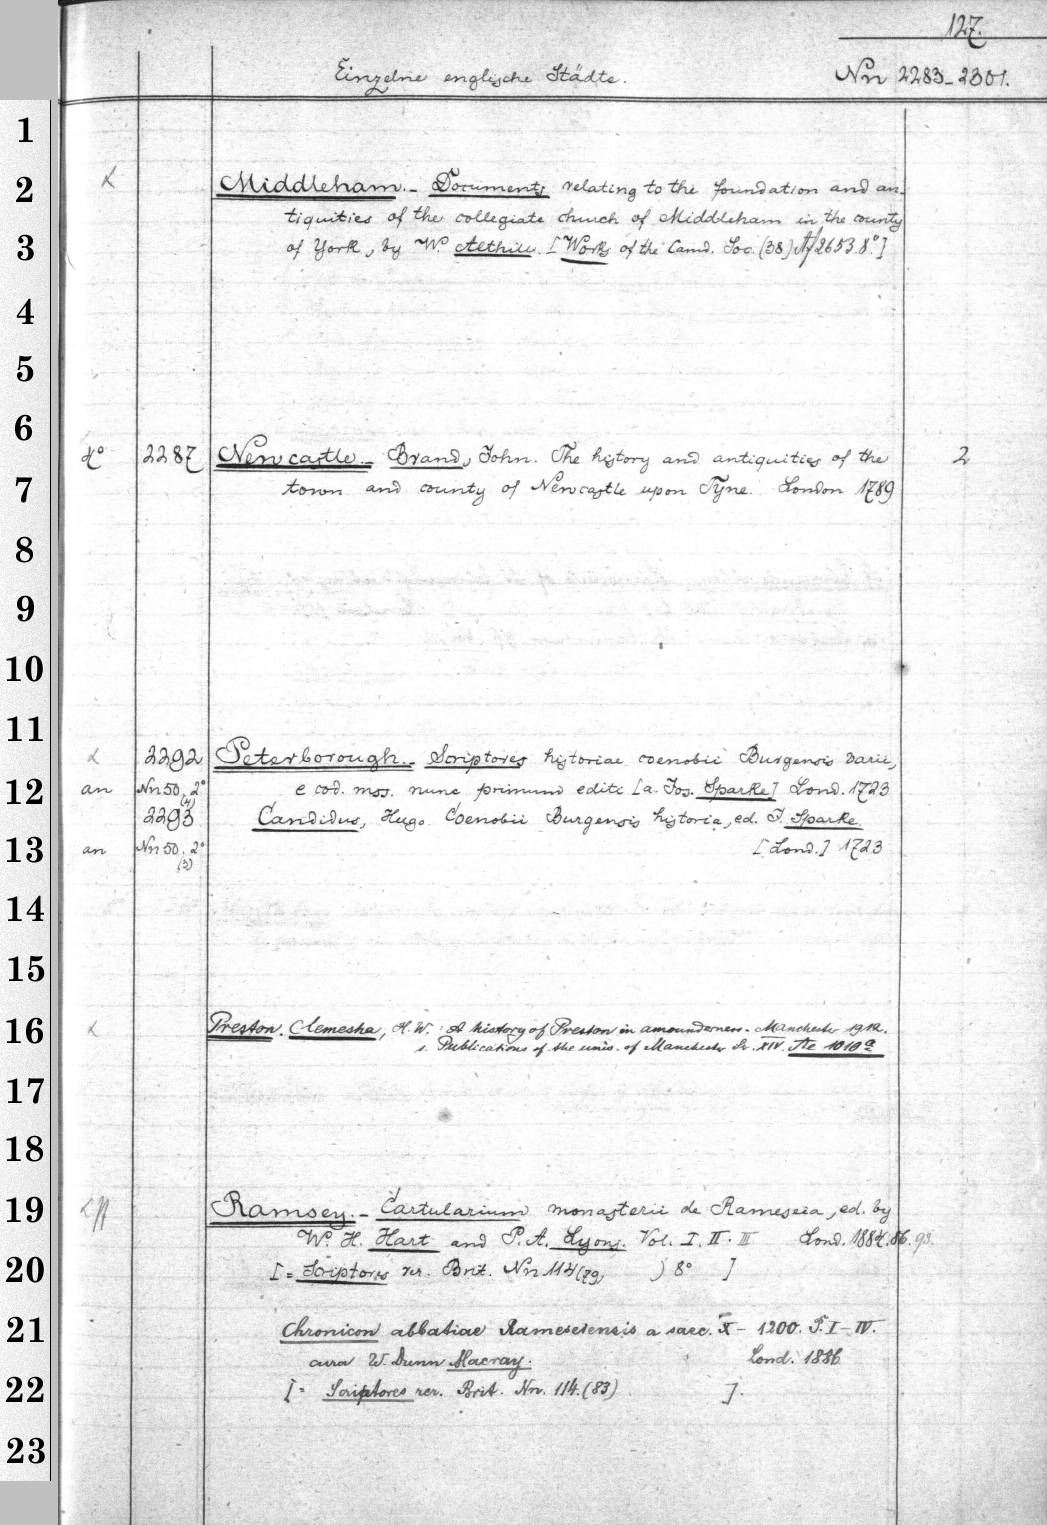 127.
Einzelne englische Städte. Nn 2283-2301.
1
2
Middleham.- Documents relating to the foundation and an-
tiquities of the collegiate church of Middleham in the county
3
of York, by Wm Atthill. [Works of the Camd. Soc. (38) 2653.8°]
4
5
6
4° 2287 Newcastle.- Brand, John. The history and antiquities of the 2
7
town and county of Newcastle upon Tyne. London 1789
8
9
10
11
2292 Peterborough.- Scriptores historiae coenobii Burgensis varii,
12
an Nn 50, 2° (4) e cod. mss. nunc primum editi [a. Jos. Sparke] Lond. 1723
2293 Candidus, Hugo. Coenobii Burgensis historia, ed. J. Sparke
13
an Nn 50, 2° (3) [Lond.] 1723
14
15
16
Preston. Clemesha, H. W.: A history of Preston in amounderness. Manchester 1912.
s. Publications of the univ. of Manchester Sr. XIV. Ae 1010a
17
18
19
Ramsey.- Cartularium monasterii de Rameseia, ed. by
W. H. Hart and P. A. Lyons. Vol. I. II. III Lond. 1884.86.93.
20
[= Scriptores rer. Brit. Nn 114 (79, ) 8° ]
21
Chronicon abbatiae Rameseiensis a saec. X - 1200. P. I-IV.
cura W. Dunn Macray. Lond. 1886
22
[= Scriptores rer. Brit. Nn. 114. (83) ].
23